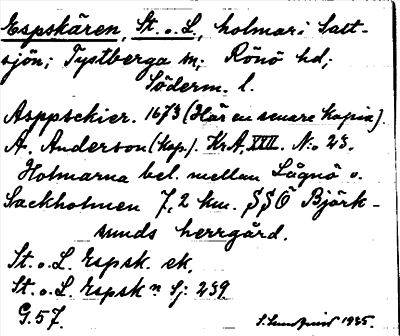 Espskären, St. o. L., holmar i Salt-
sjön; Tystberga sn; Rönö hd;
Söderm. l.
Asppsckier. 1673 (Här en senare kopia).
A. Anderson (kop.). KrA, XXII. N:o 23.
Holmarna bel. mellan Lågnö o.
Sackholmen 7,2 km. SSÖ Björk-
sunds herrgård.
St. o. L. Espsk. ek.
St. o. L. Espsk n Sj: 239
G. 57.
S. Lundqvist 1935